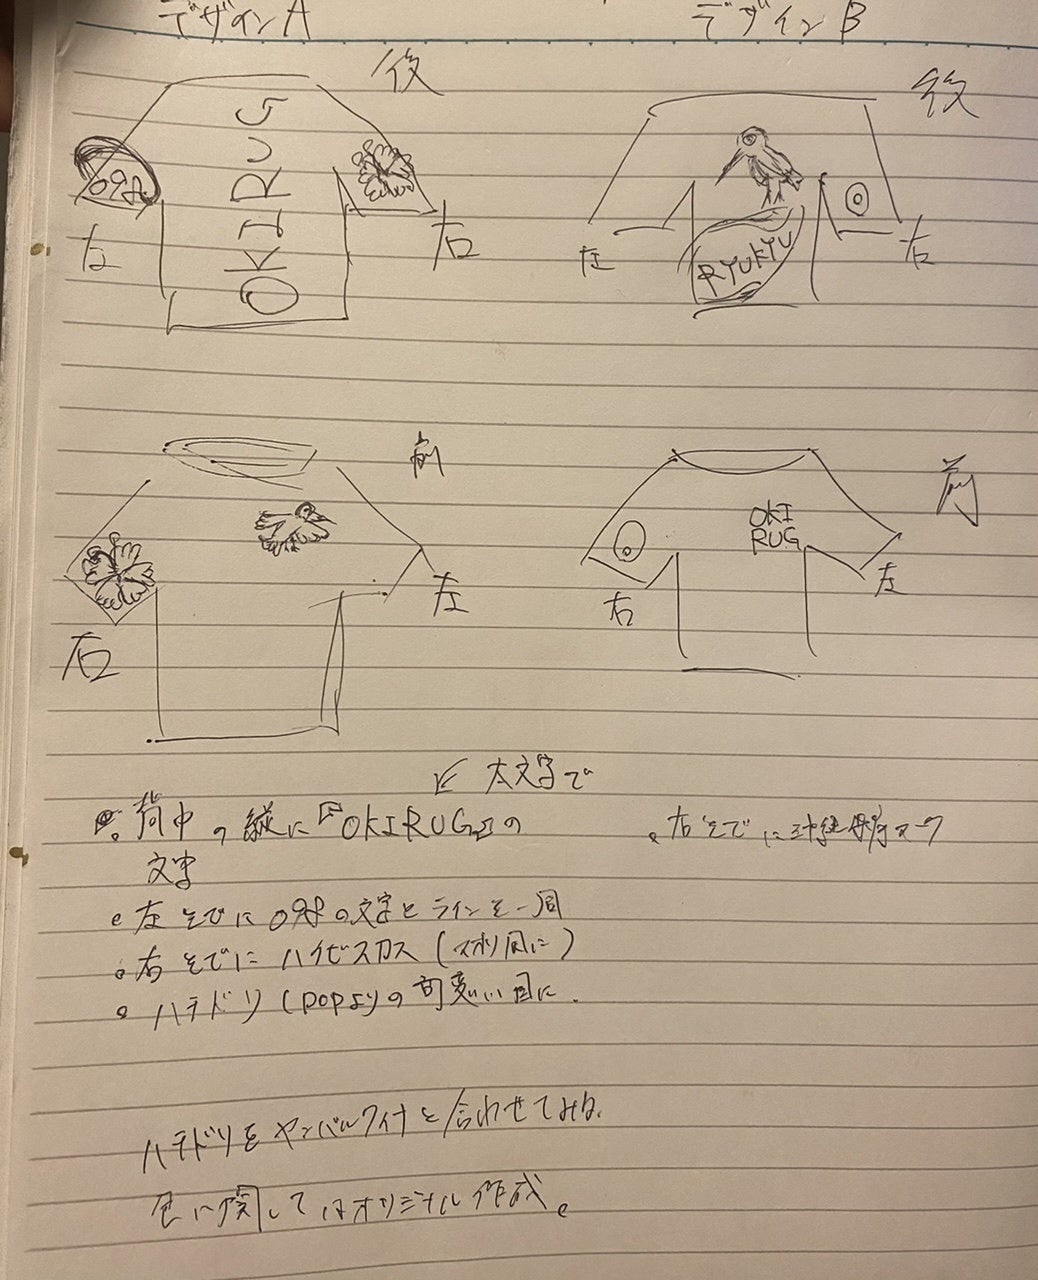 デザインA
デザインB
後
後
098
OKIRUG
左
右
RYUKYU
左
右
前
前
OKI
RUG
右
左
右
左
太文字で
背中の縦に『OKIRUG』の
文字
左そでに098の文字とラインを一周
右そでにハイビスカス
ハチドリ(popよりの可愛い目に
右そでに
マーク
ハチドリをヤンバルクイナと合わせてみる
色に関してはオリジナル作成。